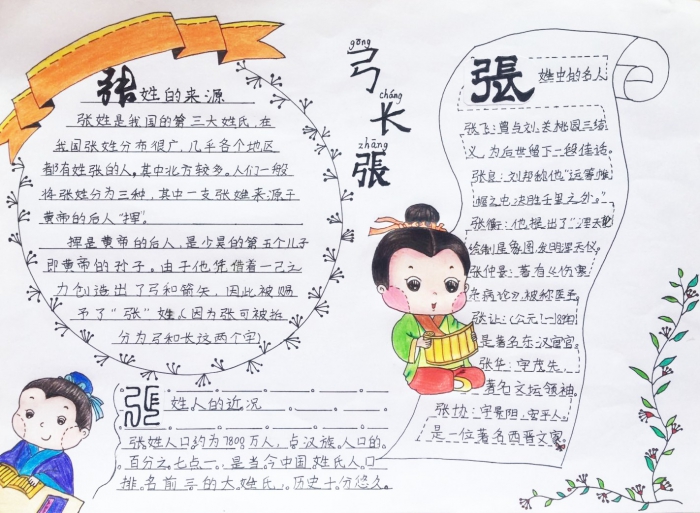 張姓的来源
张姓是我国的第三大姓氏,在
我国张姓分布很广,几乎各个地区
都有姓张的人。其中北方较多。人们一般
将张姓分为三种,其中一支张姓来源于
黄帝的后人"挥"。
挥是黄帝的后人,是少昊的第五个儿子
即黄帝的孙子。由于他凭借着一己之
力创造出了弓和箭矢,因此被赐
予了"张"姓。(因为张可被拆
分为弓和长这两个字)
gōng
弓
cháng
长
zhāng
張
張姓史中的名人
张飞:曾与刘关桃园三结
义,为后世留下一段佳话。
张良:刘邦称他"运筹帷
幄之中决胜千里之外。"
张衡:他提出了"浑天
绘制星象图发明浑天仪。
张仲景:著有《伤寒
杂病论》被称医圣。
张让:(公元!—189年)
是著名在汉宦官。
张华:字茂先,
著名文坛领袖。
张协:字景阳,安平人。
是一位著名西晋文家。
張姓人的近况
张姓人口约为7800万人,占汉族人口的。
百分之七点一,是当今中国姓氏人口
排名前三的大姓氏,历史十分悠久。